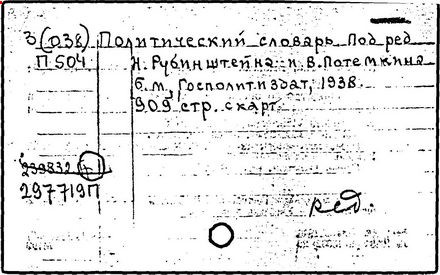 3(038) Политический словарь Под ред
П504 Н. Рубинштейна и В. Потемкина
б.м., Госполитиздат, 1938.
909 стр. с карт.
239832
297719П
ред.